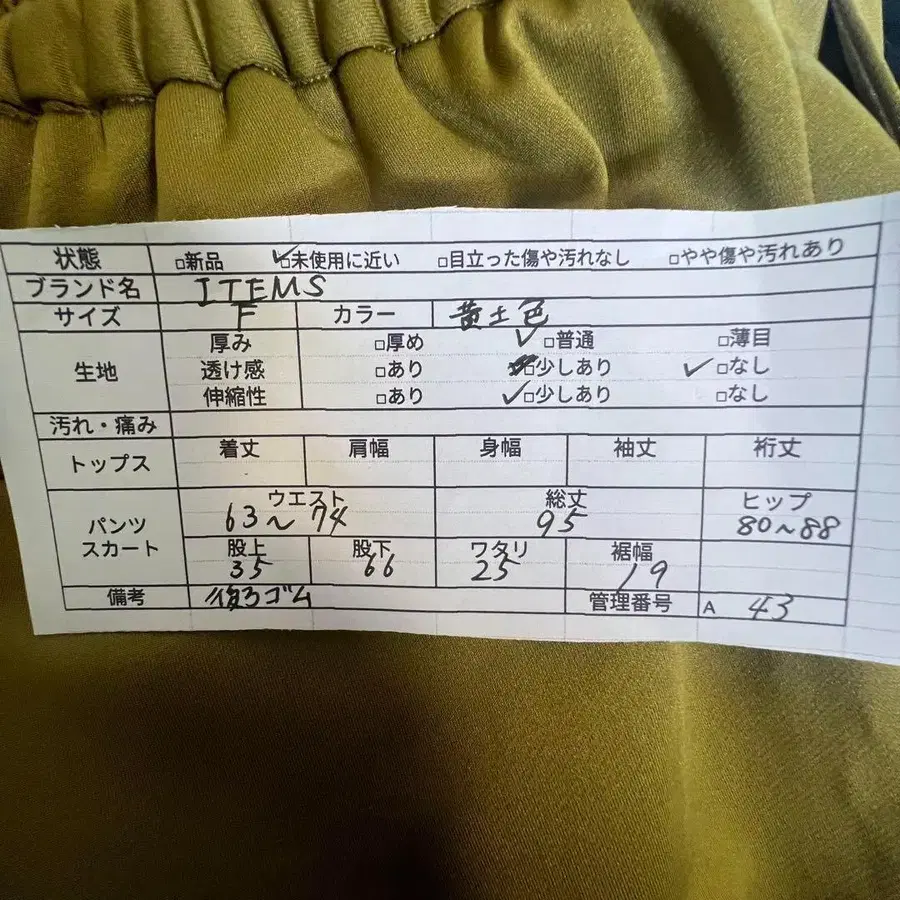 状態 □新品 ✓□未使用に近い □目立った傷や汚れなし □やや傷や汚れあり
ブランド名 ITEMS
サイズ F カラー 黄土色
生地 厚み □厚め ✓□普通 □薄目
透け感 □あり □少しあり ✓□なし
伸縮性 □あり ✓□少しあり □なし
汚れ・痛み
トップス 着丈 肩幅 身幅 袖丈 裄丈
パンツ スカート ウエスト 総丈 ヒップ
63～74 95 80～88
股上 股下 ワタリ 裾幅
35 66 25 19
備考 後ろゴム 管理番号 A 43